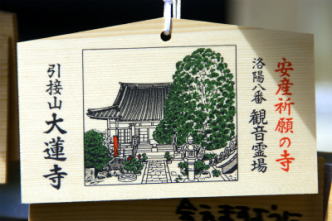 安産祈願の寺
洛陽八番 観音霊場
引接山 大蓮寺